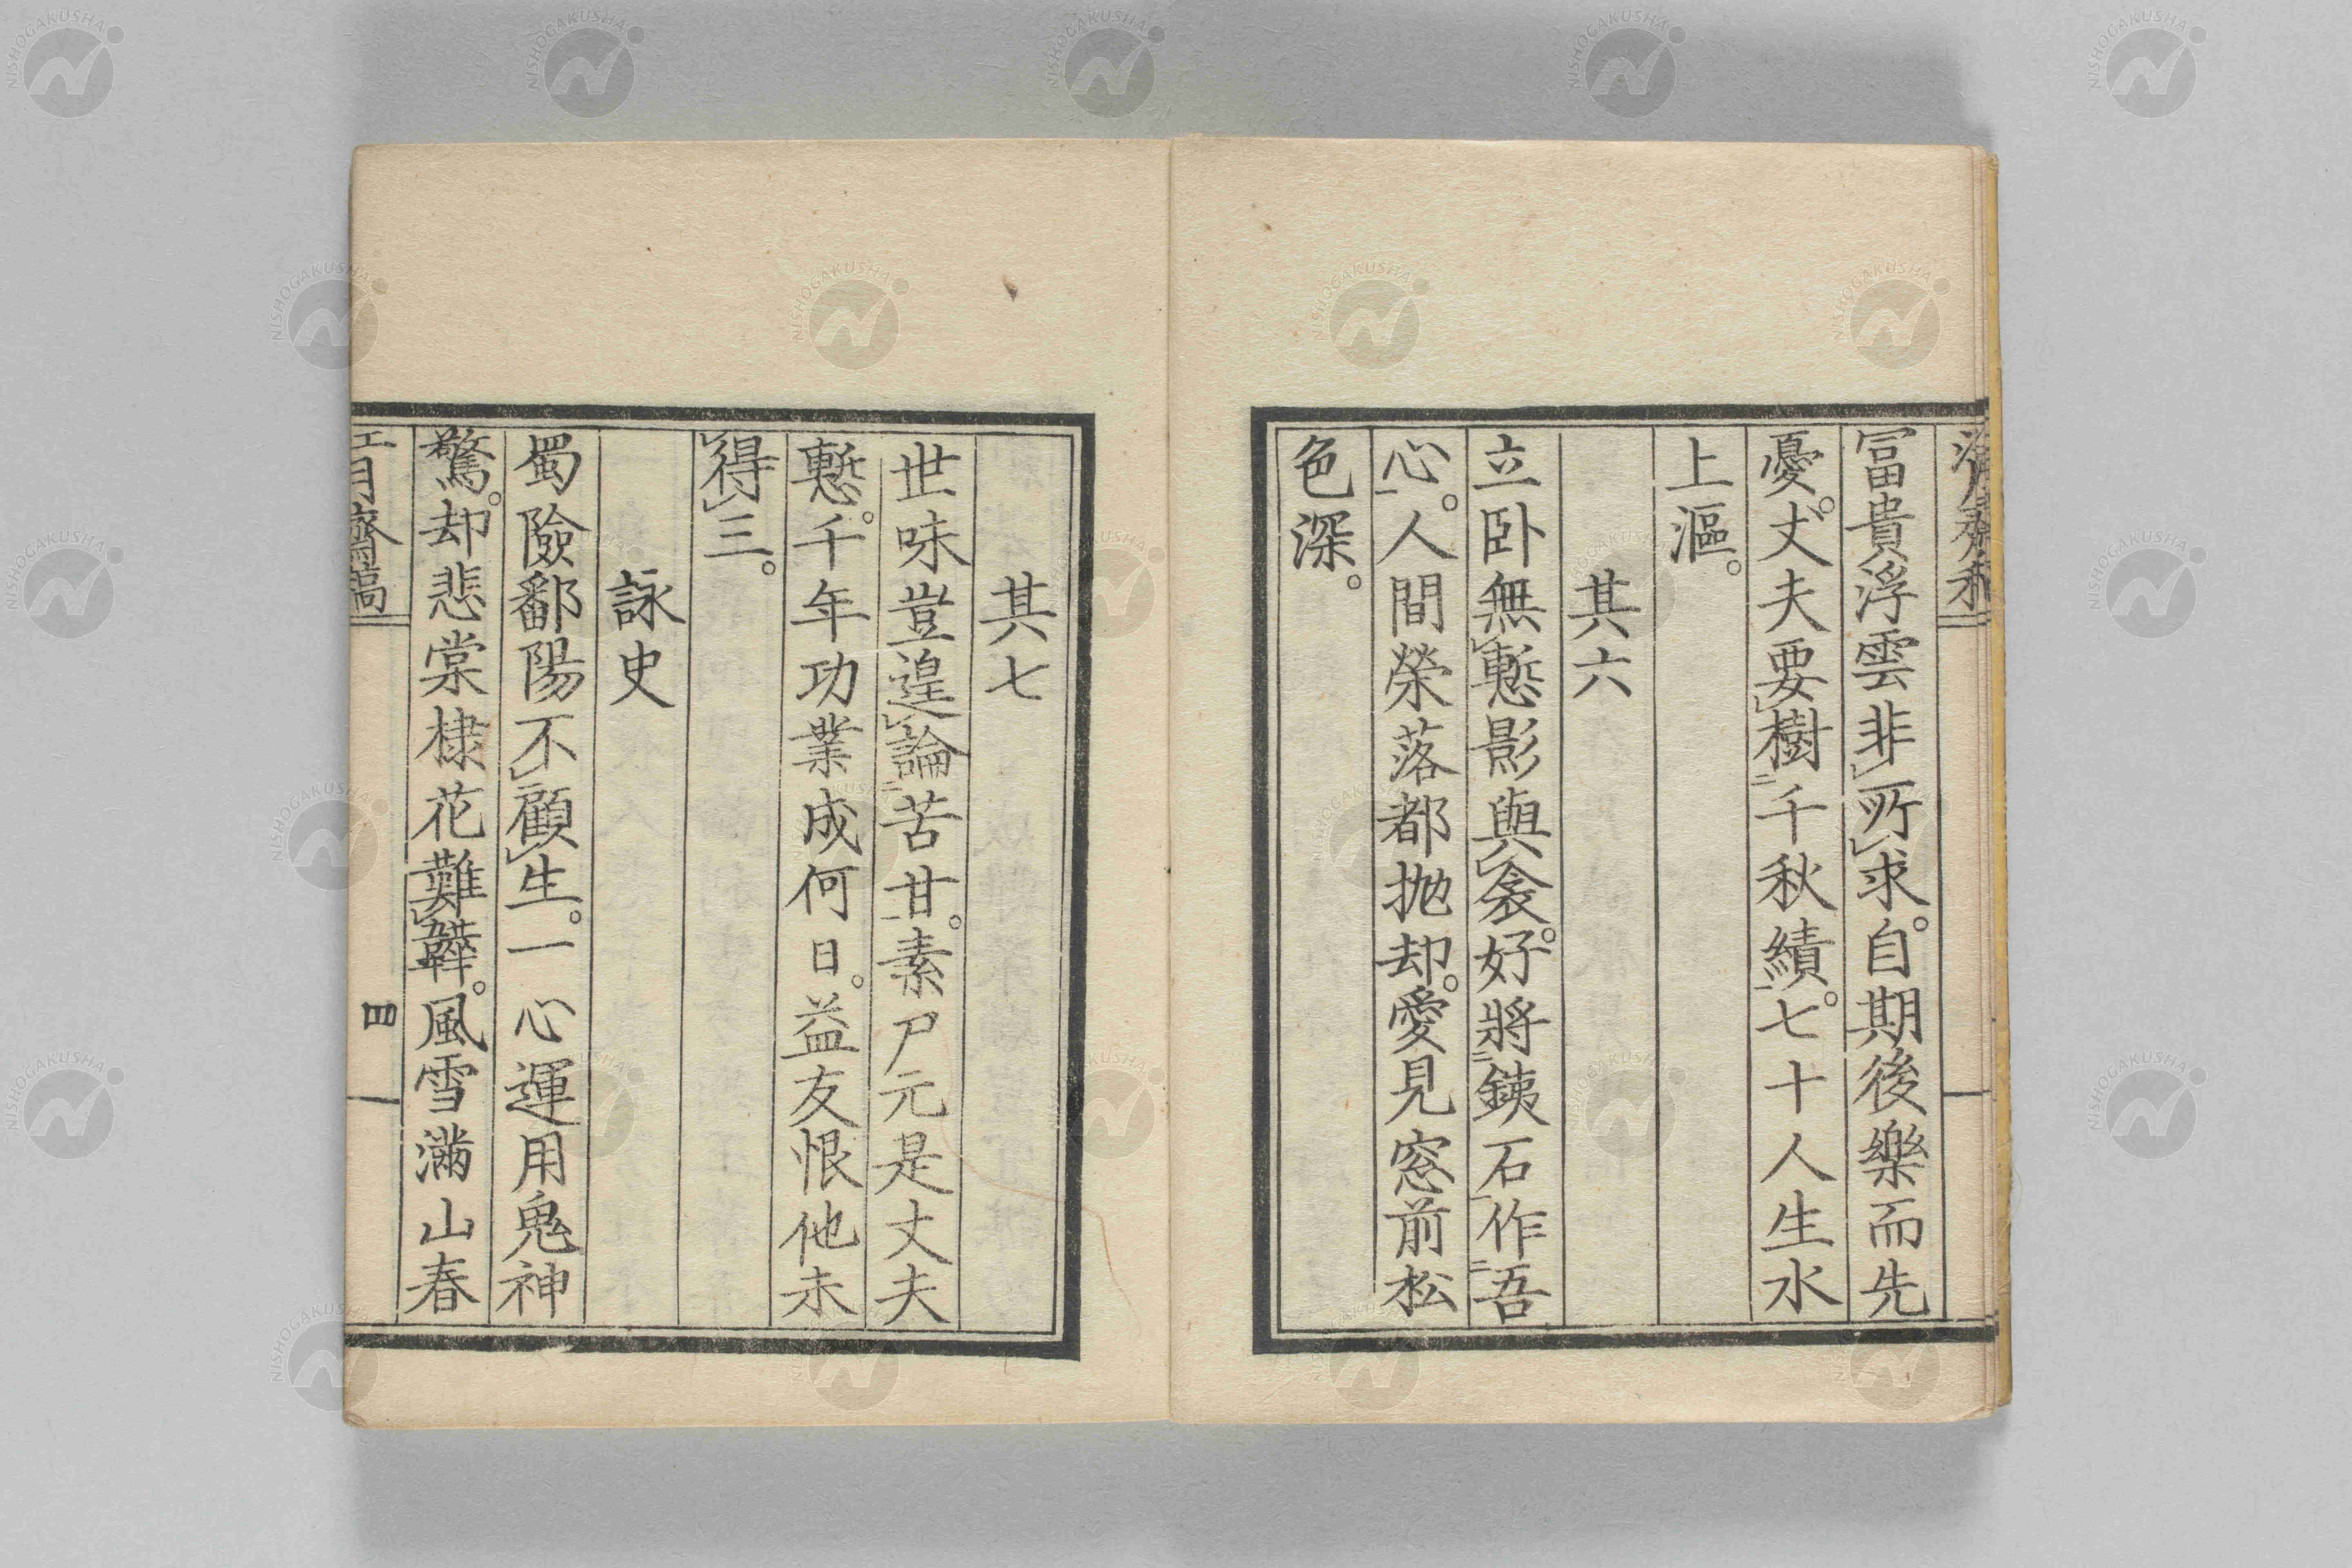 冨貴浮雲非所求。自期後樂而先
憂。丈夫要樹千秋績。七十人生水
上漚。
其六
立卧無慙影與衾。好將鐵石作吾
心。人間榮落都抛却。愛見窓前松
色深。
其七
世味豈遑論苦甘。素尸元是丈夫
慙。千年功業成何日。益友恨他未
得三。
詠史
蜀險鄱陽不顧生。一心運用鬼神
驚。却悲棠棣花難韡。風雪滿山春
四
NISHOGAKUSHA